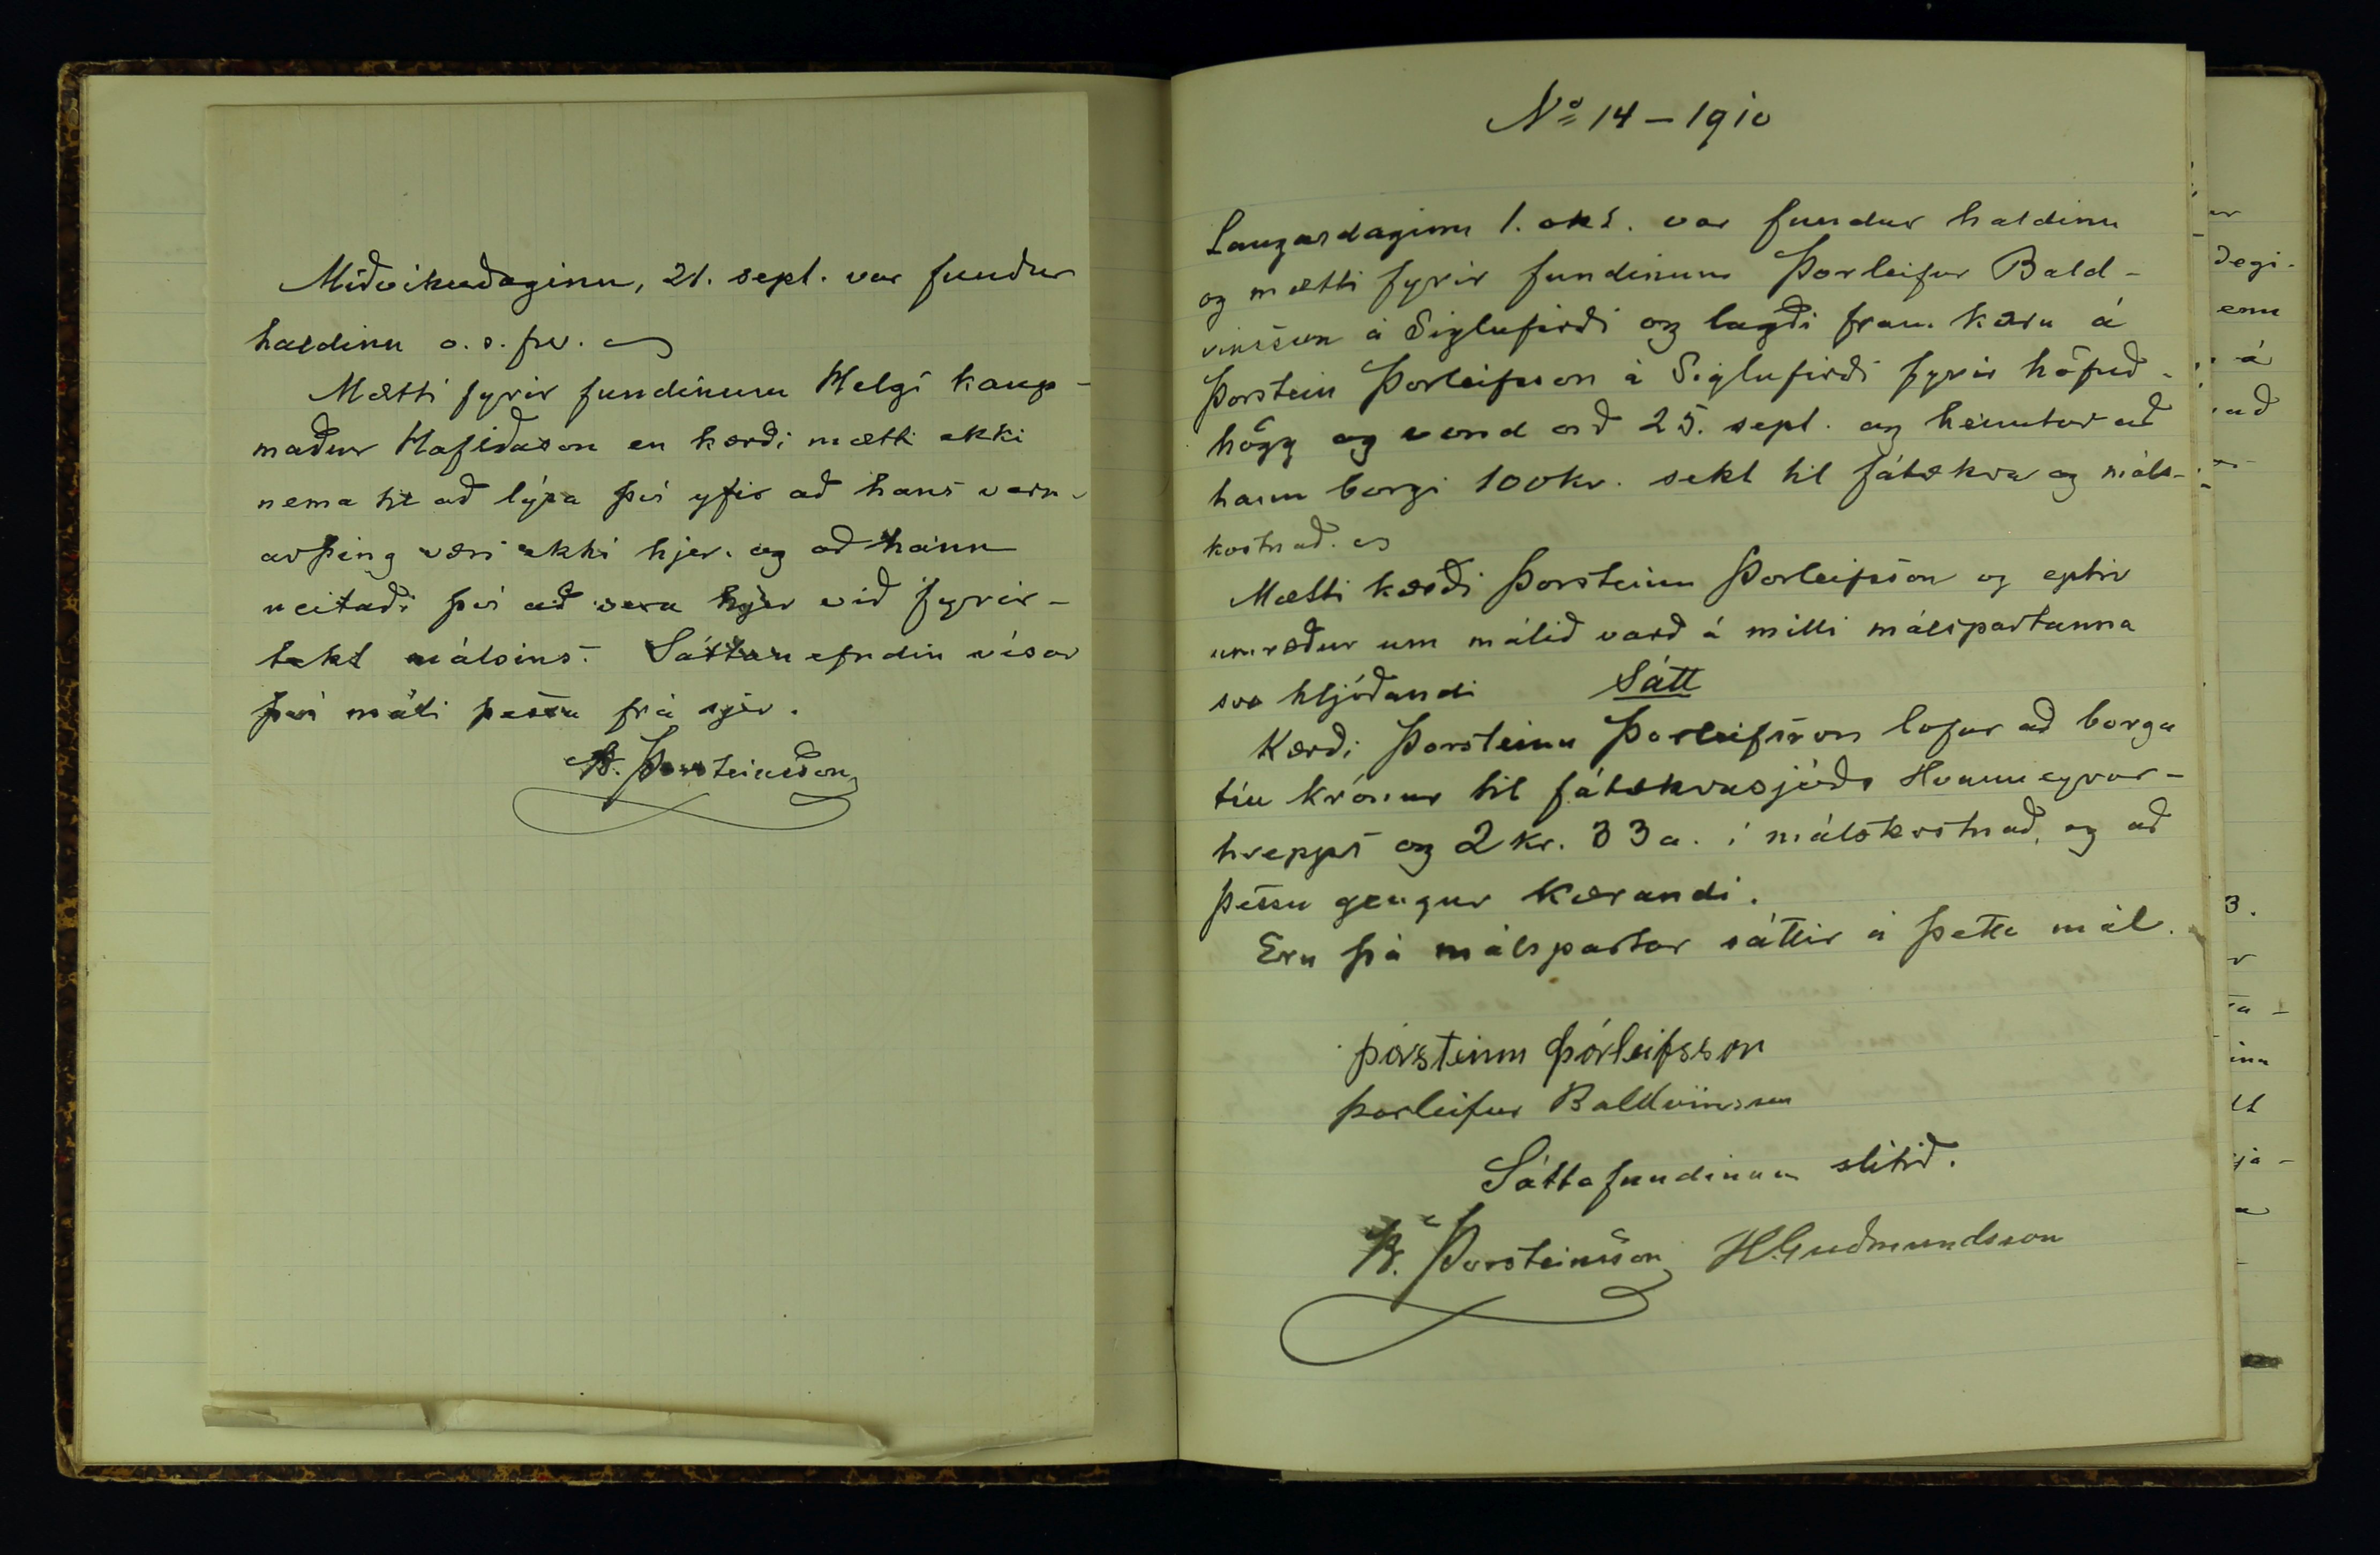 Miðvikudaginn, 21. sept. var fundur
haldinn o. s. frv.
Mætti fyrir fundinum Helgi kaup-
maður Hafliðason en kærði mætti ekki
nema til að lýsa því yfir að hans varn-
arþing væri ekki hjer. og að hann
neitaði því að vera hjer við fyrir-
tekt málsins. Sáttanefndin vísar
því máli þessu frá sjer.
B. Þorsteinsson
No 14 - 1910
Laugardaginn 1. okt. var fundur haldinn
og mætti fyrir fundinum Þorleifur Bald-
vinsson á Siglufirði og lagði fram kæru á
Þorstein Þorleifsson á Siglufirði fyrir höfuð-
högg og vond orð 25. sept. og heimtar að
hann borgi 100kr. sekt til fátækra og máls-
kostnað.
Mætti kærði Þorsteinn Þorleifsson og eptir
umræður um málið varð á milli málspartanna
svo hljóðandi Sátt
Kærði Þorsteinn Þorleifsson lofar að borga
tíu krónur til fátækrasjóðs Hvanneyrar-
hrepps og 2 kr. 33 a. í málskostnað, og að
þessu gengur kærandi.
Eru þá málspartar sáttir á þetta mál.
Þórsteinn Þórleifsson
Þorleifur Baldvinsson
Sáttafundinum slitið.
B. Þorsteinsson H. Guðmundsson